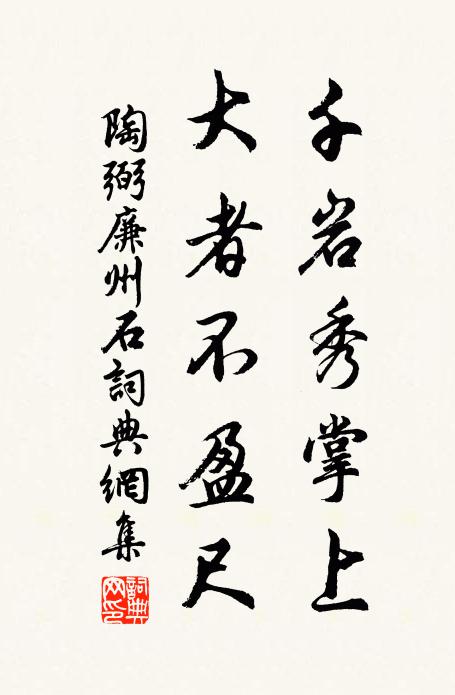 千岩秀掌上
大者不盈尺
陶弼廉州石詞典網集
詞典網印